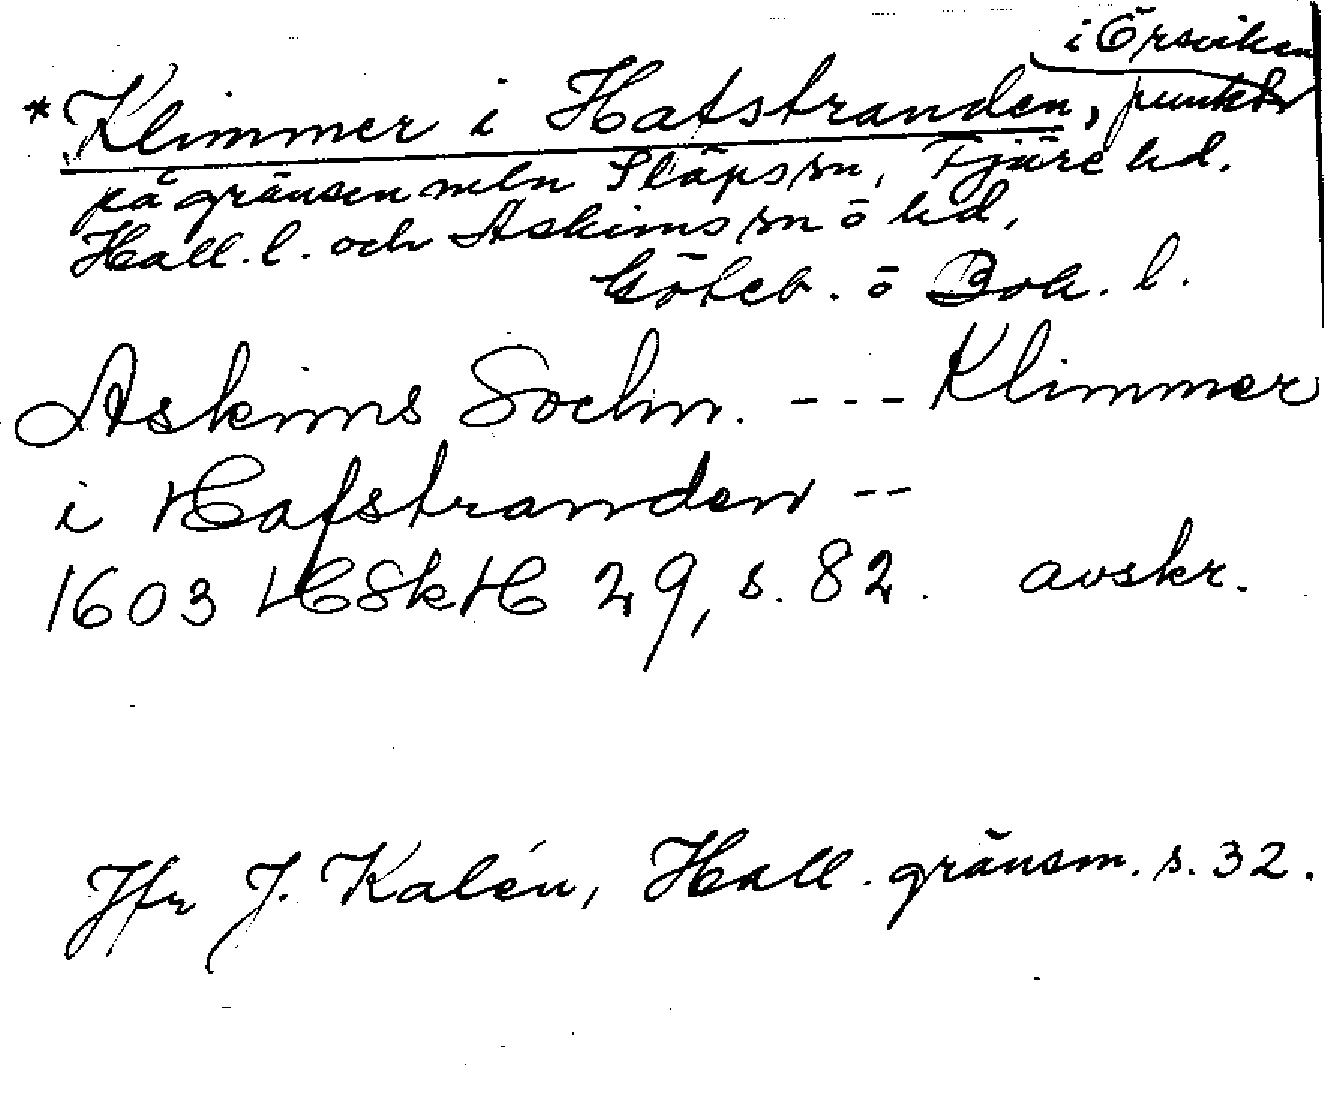 i Örsviken
* Klimmer i Hafstranden, punkt
på gränsen mln Släps sn, Fjäre hd.
Hall. l. och Askims sn o hd,
Göteb. o Boh. l.
Askims Sochn. --- Klimmer
i Hafstranden --
1603 HSkH 29, s. 82. avskr.
Jfr J. Kalén, Hall. gränsm. s. 32.